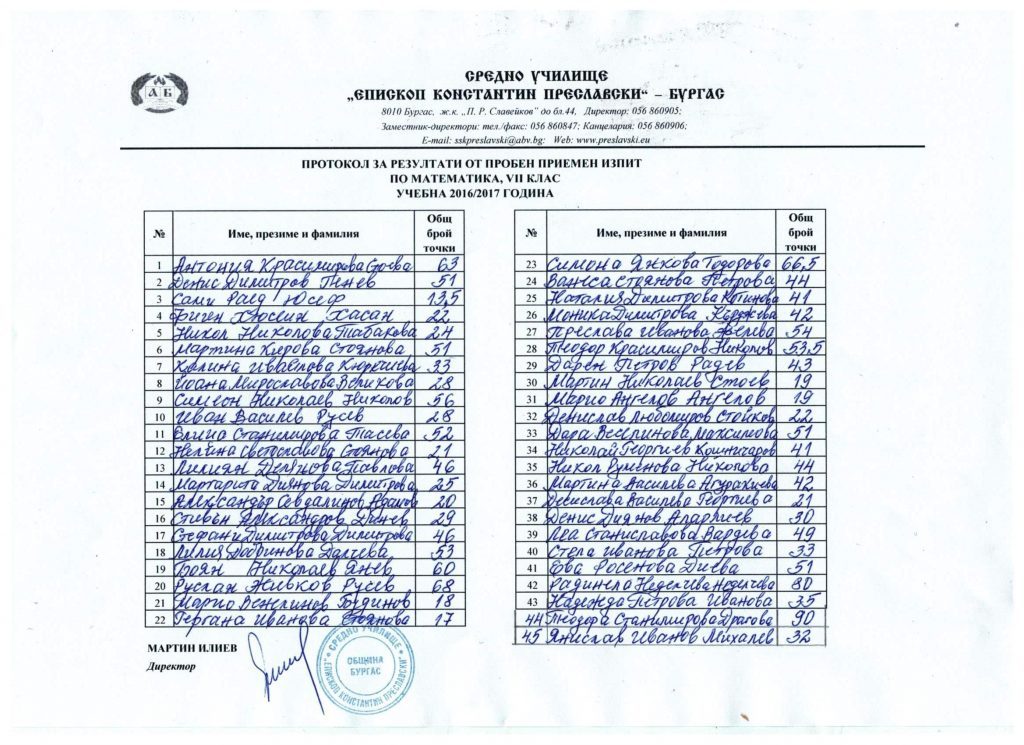 АБ
СРЕДНО УЧИЛИЩЕ
„ЕПИСКОП КОНСТАНТИН ПРЕСЛАВСКИ“ – БУРГАС
8010 Бургас, ж.к. „П. Р. Славейков“ до бл.44, Директор: 056 860905;
Заместник-директори: тел./факс: 056 860847; Канцелария: 056 860906;
E-mail: sskpreslavski@abv.bg: Web: www.preslavski.eu
ПРОТОКОЛ ЗА РЕЗУЛТАТИ ОТ ПРОБЕН ПРИЕМЕН ИЗПИТ
ПО МАТЕМАТИКА, VII КЛАС
УЧЕБНА 2016/2017 ГОДИНА
№ Име, презиме и фамилия Общ брой точки
1 Антония Красимирова Стоева 63
2 Денис Димитров Пенев 51
3 Сами Раед Юсеф 13,5
4 Биген Хюсеин Хасан 22
5 Никол Николова Табакова 24
6 Мартина Кирова Стоянова 51
7 Ивайлова 33
8 Йоана Мирославова Великова 28
9 Симеон Николаев Николов 56
10 Иван Василев Русев 28
11 Станимирова Тасева 52
12 Светославова Стоянова 21
13 Лилиян Павлова 46
14 Маргарита Диянова Димитрова 25
15 Александър Севдалинов 20
16 Стивън Александров Динев 29
17 Стефани Димитрова Димитрова 46
18 Лилия Добринова Далчева 53
19 Боян Николаев Янев 60
20 Руслан Живков Русев 68
21 Марио Венелинов 18
22 Гергана Иванова Стоянова 17
№ Име, презиме и фамилия Общ брой точки
23 Симона Янкова Тодорова 66,5
24 Ванеса Стоянова Петрова 44
25 Наталия Димитрова 41
26 Моника Димитрова 42
27 Преслава Иванова 54
28 Теодор Красимиров Николов 53,5
29 Дарен Петров Радев 43
30 Мартин Николаев Стоев 19
31 Марио Ангелов Ангелов 19
32 Денислав Любомиров Стойков 22
33 Дара Веселинова Максимова 51
34 Николай Георгиев Кошничаров 41
35 Никол Руменова Николова 44
36 Мартина Василева 42
37 Денислава Василева Георгиева 21
38 Денис Диянов 30
39 Леа Станиславова Вардева 49
40 Стела Иванова Петрова 33
41 Ева Росенова Диева 51
42 Радинела Неделчева Неделчева 80
43 Надежда Петрова Иванова 35
44 Теодора Станимирова Драгова 90
45 Янислав Иванов Михалев 32
МАРТИН ИЛИЕВ
Директор
СРЕДНО УЧИЛИЩЕ
„ЕПИСКОП КОНСТАНТИН ПРЕСЛАВСКИ“
ОБЩИНА
БУРГАС